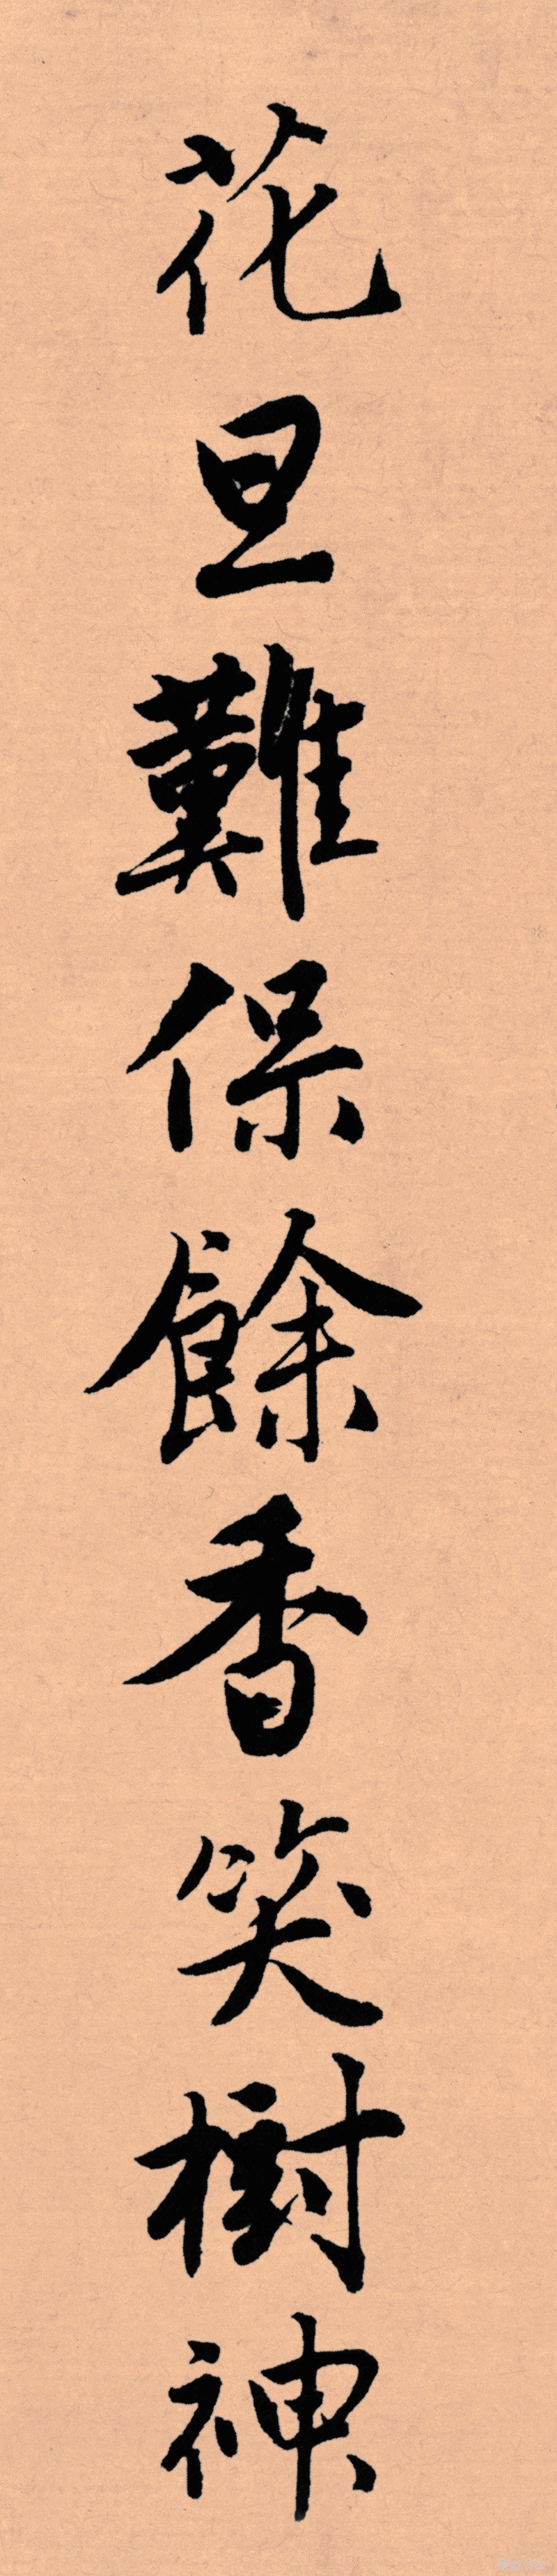 花旦難保餘香笑樹神